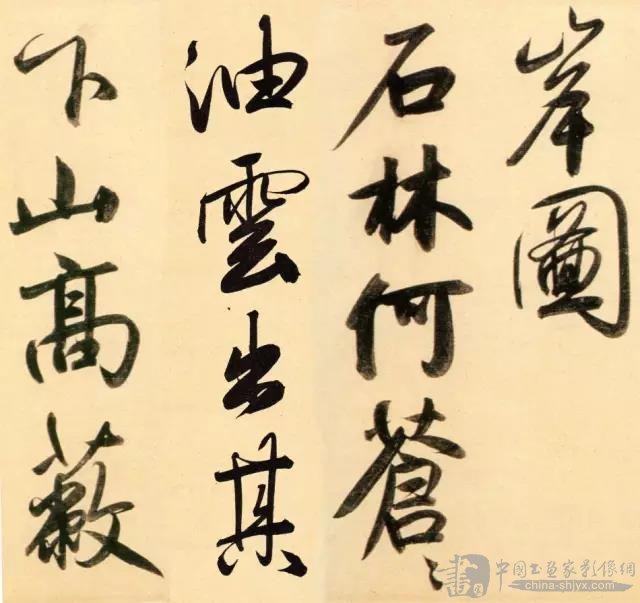 岸圖
石林何蒼々
油雲出其
下山高蔽
書 中国书画家影像網
china-shjyx.com